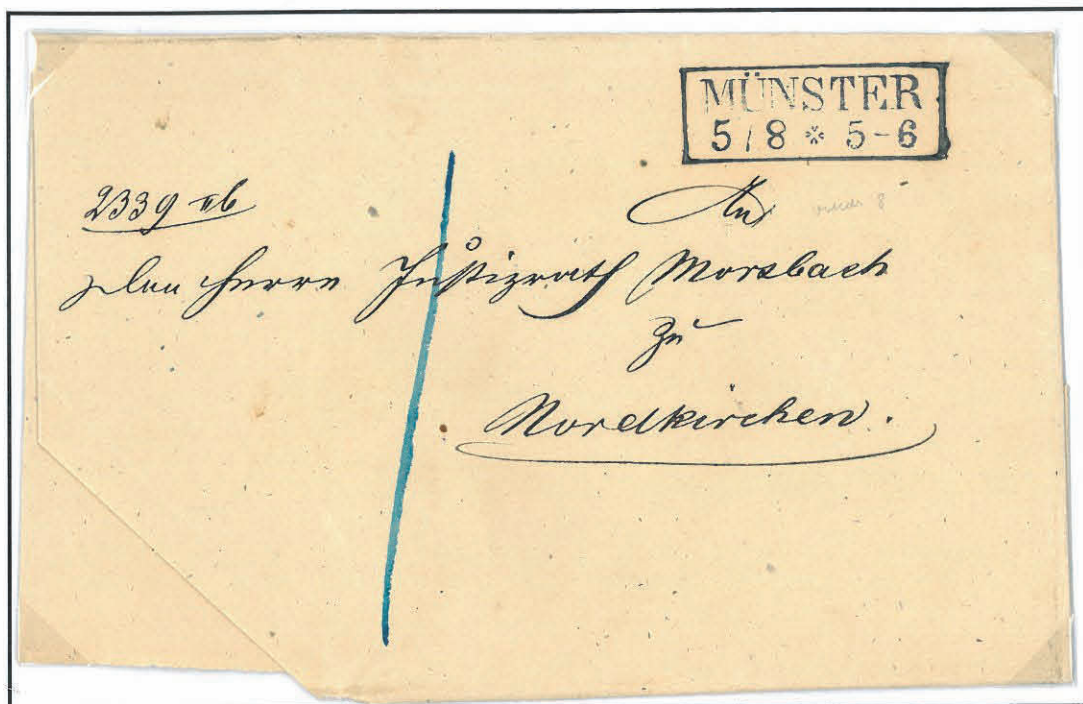 MÜNSTER
5/8 * 5-6
2339 IIb
An
den Herrn Justizrath Morsbach
zu
Nordkirchen.